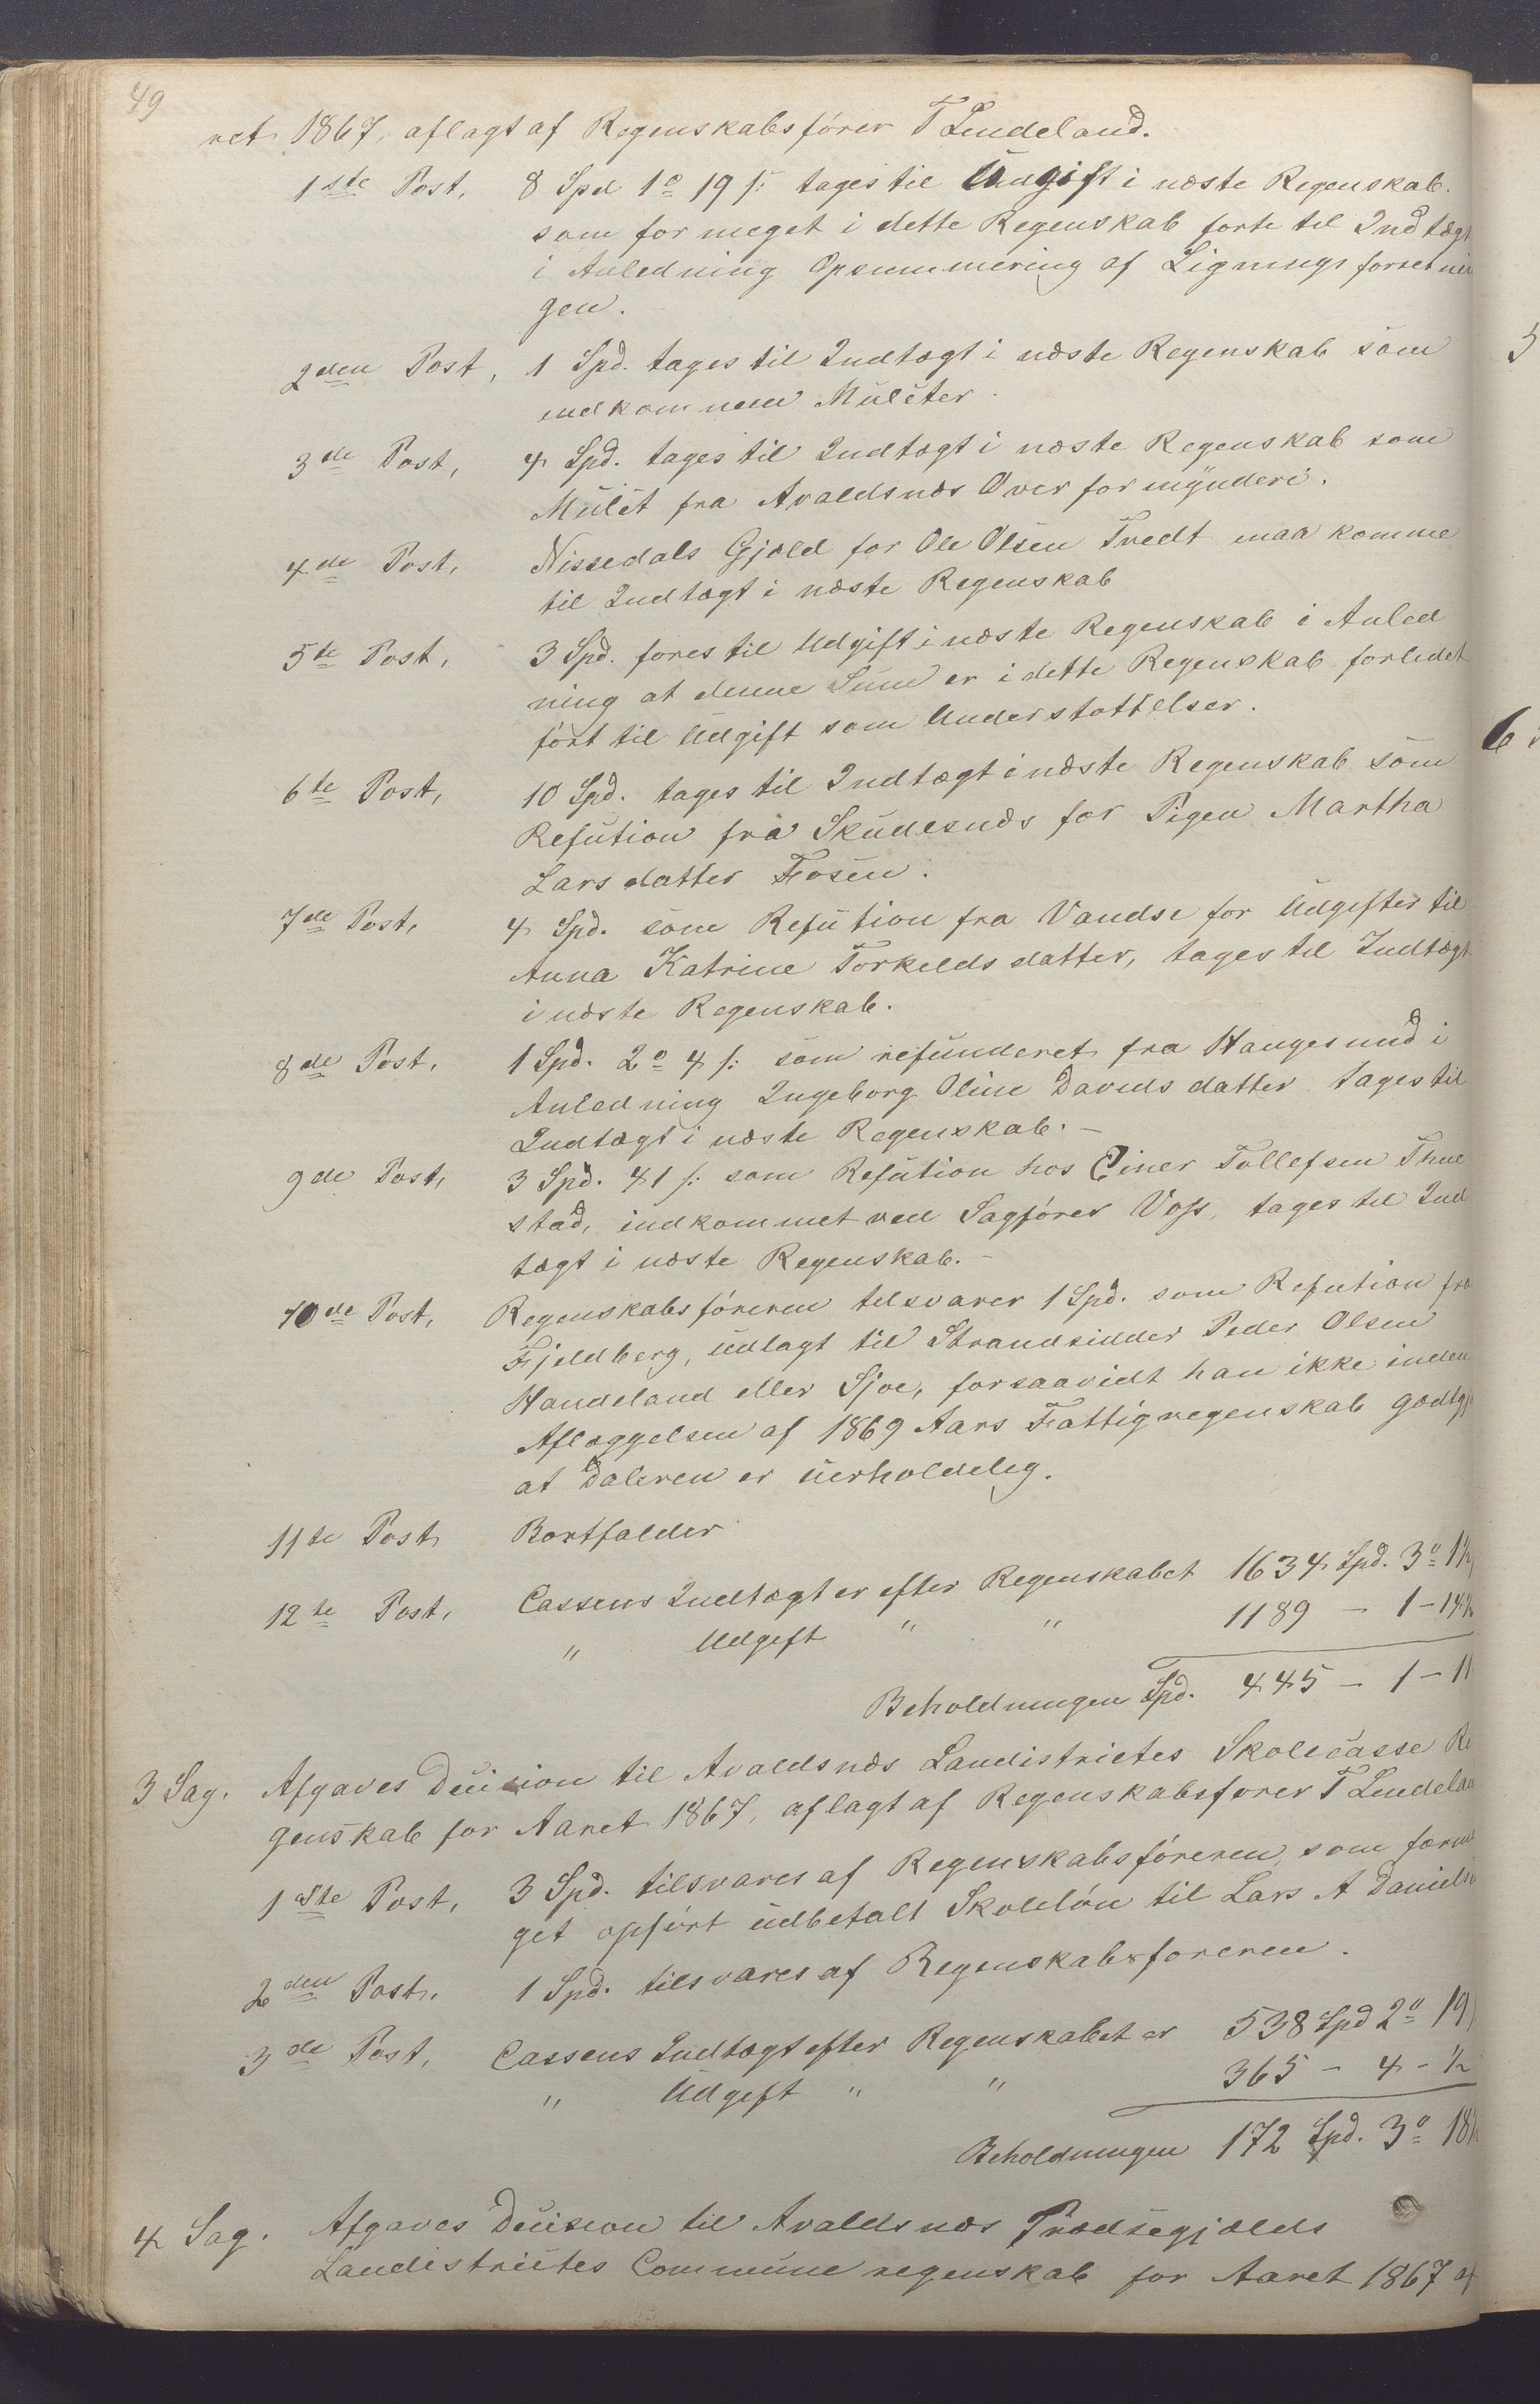 49
ret 1867, aflagt af Regenskabsfører T Lindeland.
1ste Post, 8 Spd 1o 19 s: tages til Udgift i næste Regenskab.
som for meget i dette Regenskab førte til Indtægt
i Anledning Opsummering af Lignings forretnin
gen.
2den Post, 1 Spd. tages til Indtægt i næste Regenskab som
indkommen Mulcter.
3de Post, 4 Spd. tages til Indtægt i næste Regenskab som
Mulct fra Avaldsnæs Overformynderi.
4de Post, Nissedals Gjæld for Ole Olsen Tvedt maa komme
til Indtægt i næste Regenskab
5te Post, 3 Spd. føres til Udgift i næste Regenskab i Anled
ning at denne Sum er i dette Regenskab forledet
ført til Udgift som Understøttelser.
6te Post, 10 Spd. tages til Indtægt i næste Regenskab som
Refution fra Skudesnæs for Pigen Martha
Larsdatter Fosen.
7de Post, 4 Spd. som Refution fra Vandse for Udgifter til
Anna Katrine Torkelds datter, tages til Indtægt
i næste Regenskab.
8de Post, 1 Spd. 2o 4 s: som refunderet fra Haugesund i
Anledning Ingeborg Oline Davids datter tages til
Indtægt i næste Regenskab. –
9de Post, 3 Spd. 41 s: som Refution hos Einer Tollefsen Thue
stad, indkommet ved Sagfører Voss, tages til Ind
tægt i næste Regenskab. –
10de Post, Regenskabsføreren tilsvarer 1 Spd. som Refution fra
Fjeldberg, udlagt til Strandsidder Peder Olsen
Handeland eller Sjoe, forsaavidt han ikke inden
Aflæggelsen af 1869 Aars Fattigregenskab godtgj
at Daleren er uerholdelig.
11te Post Bortfalder
12te Post, Cassens Indtægt er efter Regenskabet 1634 Spd. 3o 1½
" Udgift " " 1189 – 1 – 14½
Beholdningen Spd. 445 – 1 – 11
3 Sag. Afgaves Decision til Avaldsnæs Landistrictes Skolecasse Re
genskab for Aaret 1867, aflagt af Regenskabsfører T Lindelan
1ste Post, 3 Spd. tilsvares af Regenskabsføreren, som forme
get opført udbetalt Skoleløn til Lars A Daniels
2den Post, 1 Spd. tilsvares af Regenskabsføreren.
3de Post, Cassens Indtægt efter Regenskabet er 538 Spd 2o 19
" Udgift " " 365 – 4 – ½
Beholdningen 172 Spd. 3o 18½
4 Sag. Afgaves Decision til Avaldsnæs Præstegjælds
Landistrictes Commune regenskab for Aaret 1867 af